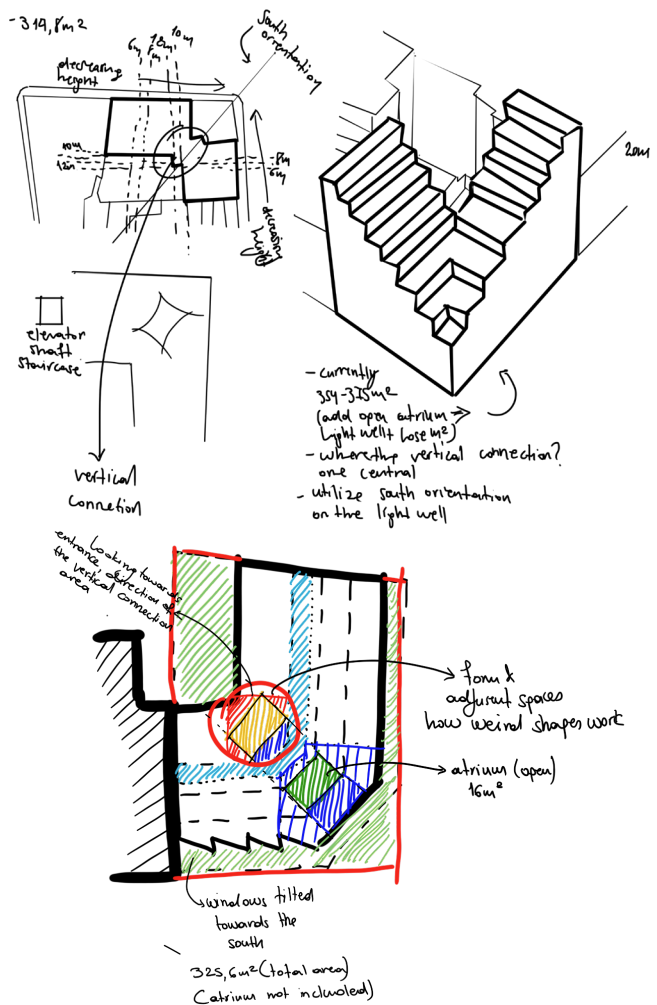 -314,8m²
6m
8m
12m
10m
South
orientation
decreasing
height
10m
12m
8m
6m
decreasing
height
20m
elevator
shaft
staircase
vertical
connetion
- currently
354-375m²
(add open atrium →
light well + lose m²)
- where the vertical connection?
one central
- utilize south orientation
on the light well
Looking towards
entrance, direction of
the vertical connection
area
form &
adjacent spaces
how weird shapes work
atrium (open)
16m²
windows tilted
towards the
south
325,6m² (total area)
(atrium not included)